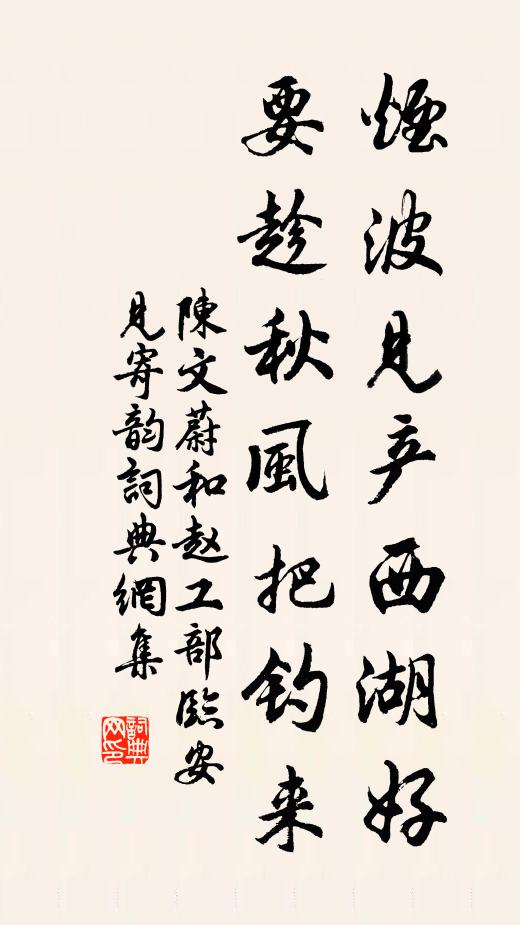 煙波見产西湖好
要趁秋風把钓来
陳文蔚和赵工部臨安
見寄韵詞典網集
詞典網印